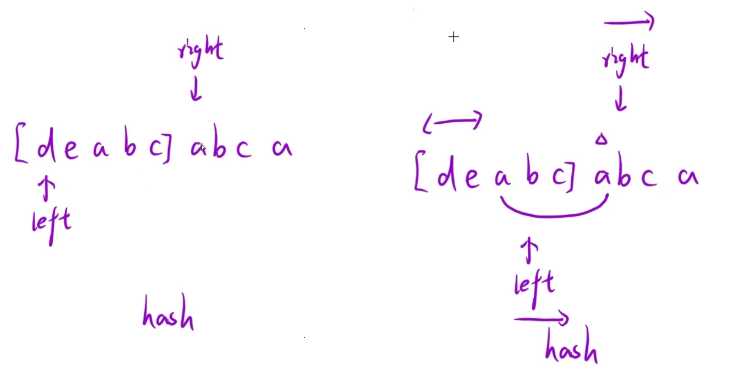 right
[d e a b c] a b c a
left
hash
right
[d e a b c] a b c a
left
hash